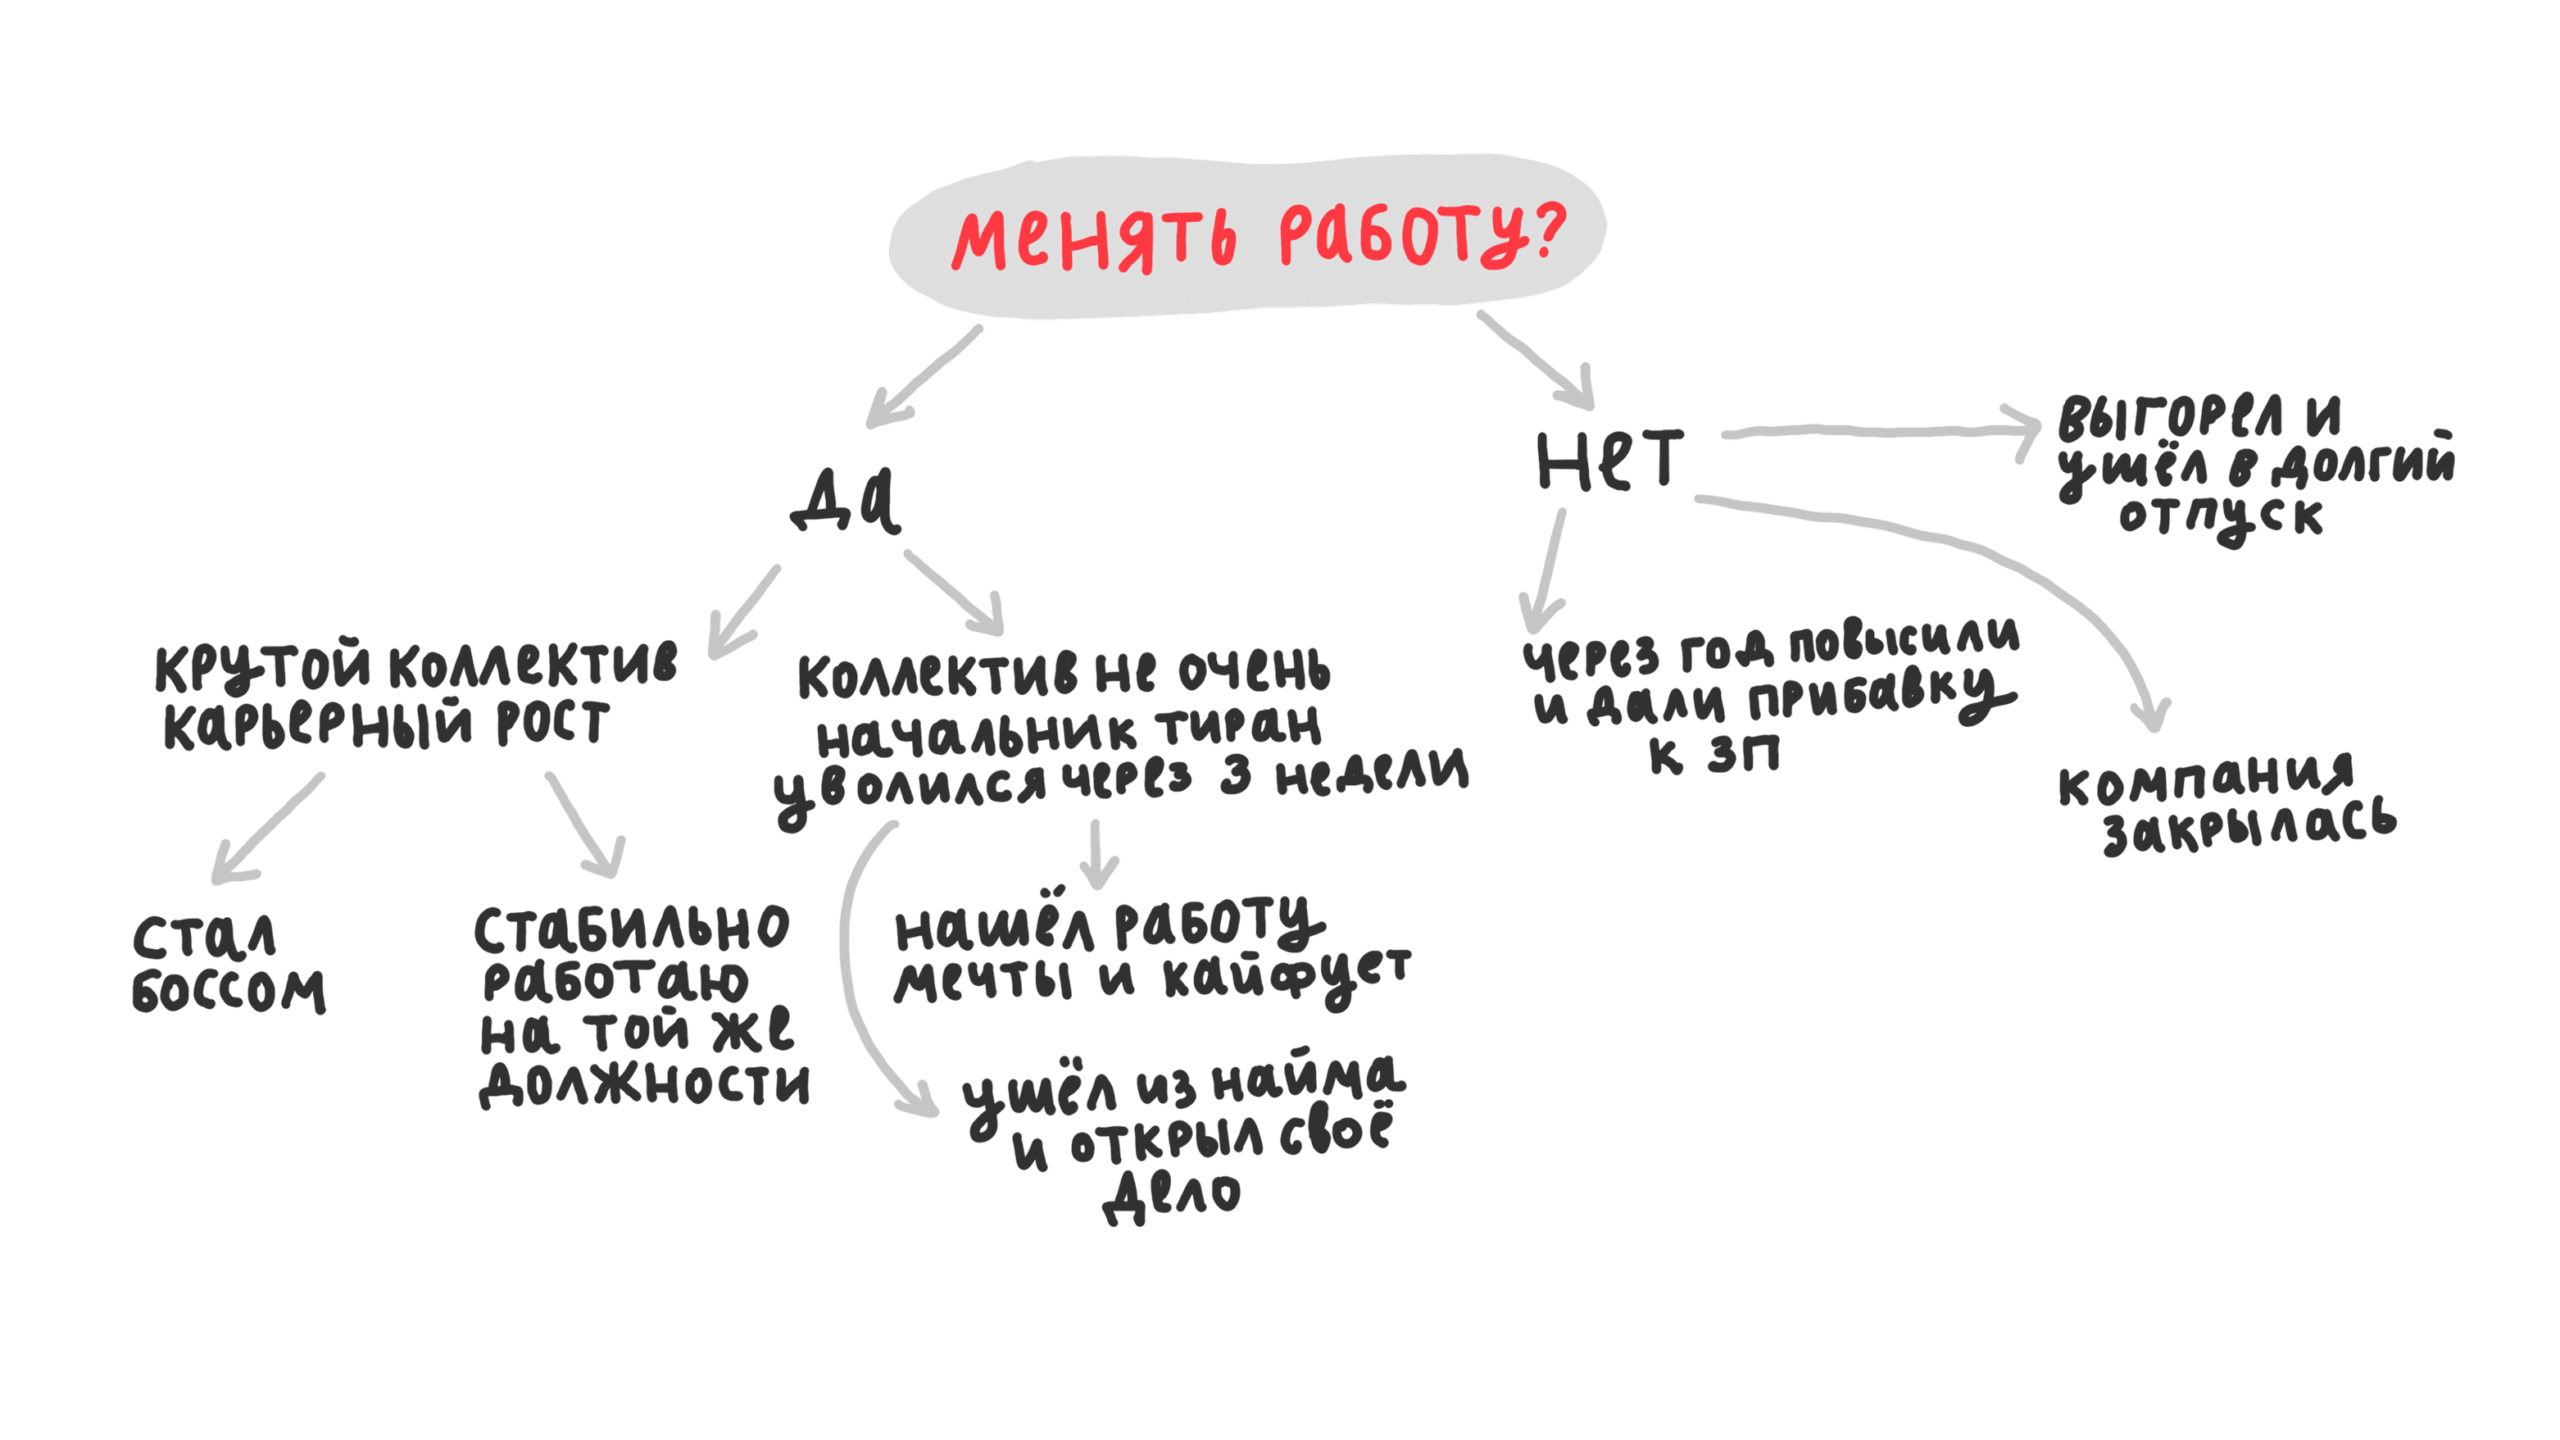 менять работу?
да
нет
выгорел и
ушёл в долгий
отпуск
крутой коллектив
карьерный рост
коллектив не очень
начальник тиран
уволился через 3 недели
через год повысили
и дали прибавку
к зп
компания
закрылась
стал
боссом
стабильно
работаю
на той же
должности
нашёл работу
мечты и кайфует
ушёл из найма
и открыл своё
дело